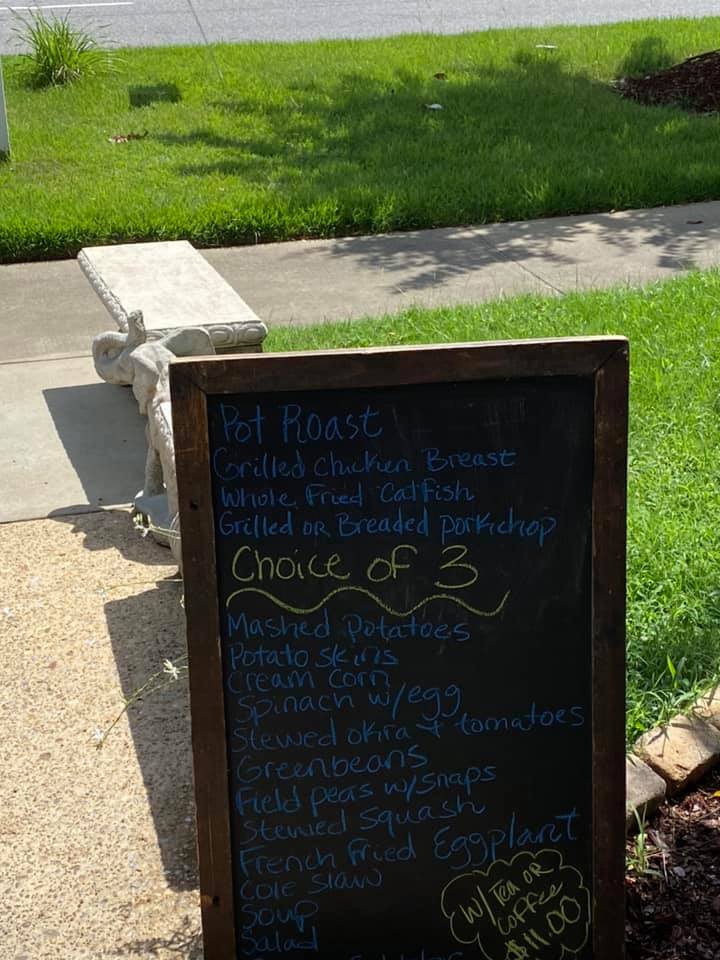 Pot Roast
Grilled Chicken Breast
Whole Fried Catfish
Grilled OR Breaded porkchop
Choice of 3
Mashed Potatoes
Potato Skins
Cream Corn
Spinach w/egg
Stewed okra + tomatoes
Greenbeans
Field peas w/snaps
Stewed Squash
French Fried Eggplant
Cole Slaw
Soup
Salad
W/Tea OR
Coffee
$11.00